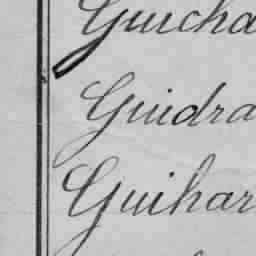 Guicha
Guidra
Guihar